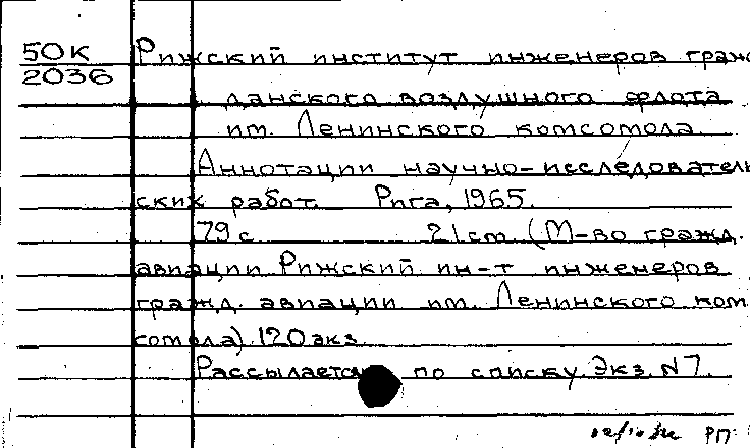 50К Рижский институт инженеров граж-
2036 данского воздушного флота
им. Ленинского комсомола
Аннотации научно-исследователь
ских работ. Рига, 1965.
79 с. 21 cm. (М-во гражд.
авиации Рижский ин-т инженеров
гражд. авиации им. Ленинского ком
сомола) 120 экз.
Рассылается по списку. Экз. N 7.
РП